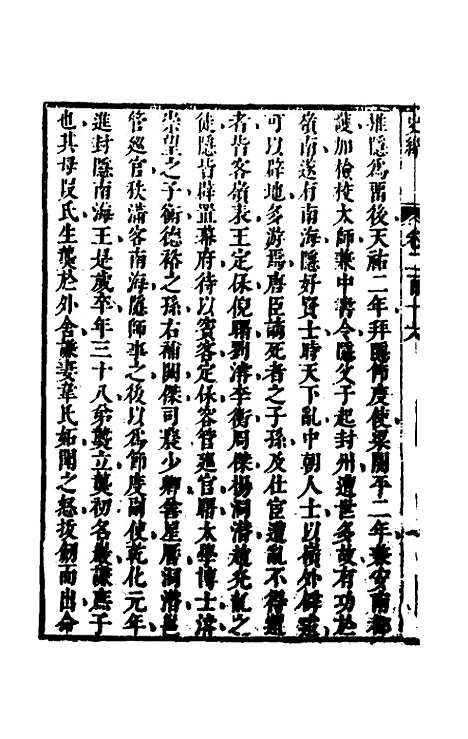 史緯　卷二百十六
推隱爲留後天祐二年拜隱節度使梁開平二年兼安南都
護加檢校太師兼中書令隱父子起封州遭世多故有功於
嶺南遂有南海隱好賢士時天下亂中朝人士以嶺外僻遠
可以辟地多游焉唐臣謫死者之子孫及仕宦遭亂不得還
者皆客嶺表王定保倪曙劉濬李衡周傑楊洞潛趙光胤之
徒隱皆辟置幕府待以賓客定保容管巡官曙太學博士濬
崇望之子衡德裕之孫右補闕傑司農少卿善星曆洞潛邕
管巡官秩滿客南海隱師事之後以爲節度副使乾化元年
進封隱南海王是歲卒年三十八弟龑立龑初名巖謙庶子
也其母段氏生龑於外舍謙妻韋氏妬聞之怒拔劍而出命